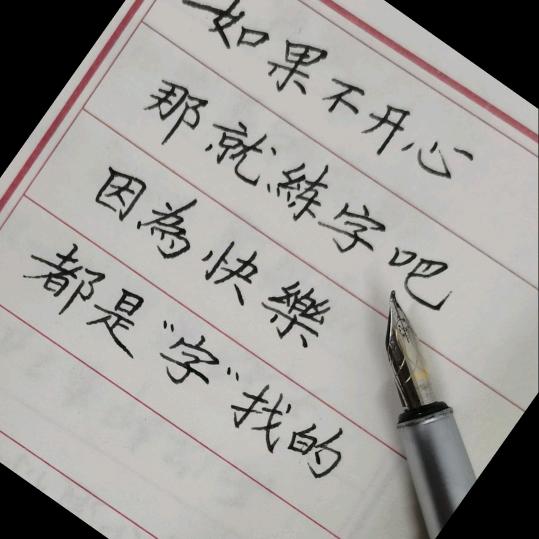 如果不开心
那就練字吧
因為快樂
都是“字”找的